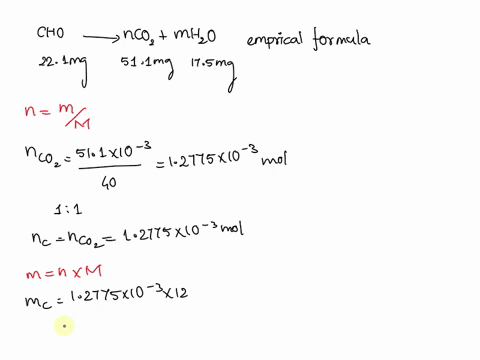 CHO ⟶ nCO₂ + mH₂O emprical formula
22.1mg 51.1mg 17.5mg
n = m/M
nCO₂ = 51.1×10⁻³/40 = 1.2775×10⁻³ mol
1:1
nc = nCO₂ = 1.2775×10⁻³ mol
m = n × M
mc = 1.2775×10⁻³ × 12